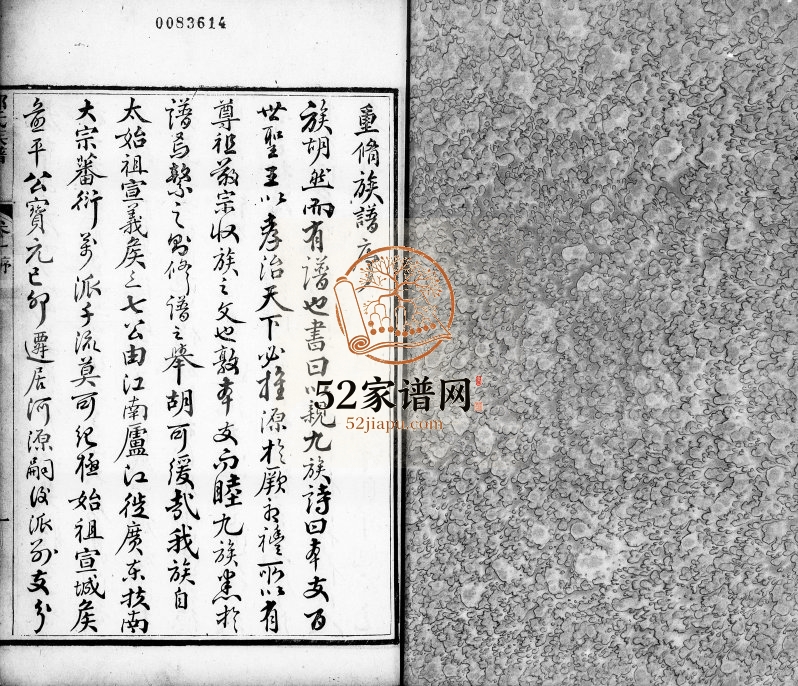 0083614
重脩族譜序
族胡然而有譜也書曰以親九族詩曰本支百
世聖王以孝治天下必推源於厥之禮所以有
尊祖敬宗收族之文也敦本支而睦九族悉於
譜焉繫之則修譜之舉胡可緩哉我族自
太始祖宣義矦三七公由江南廬江徙廣東扶南
大宗蕃衍万派千流莫可紀極始祖宣城矦
孟平公寶元己卯遷居河源嗣後派別支分
卷一序
一
52家谱网
52jiapu.com